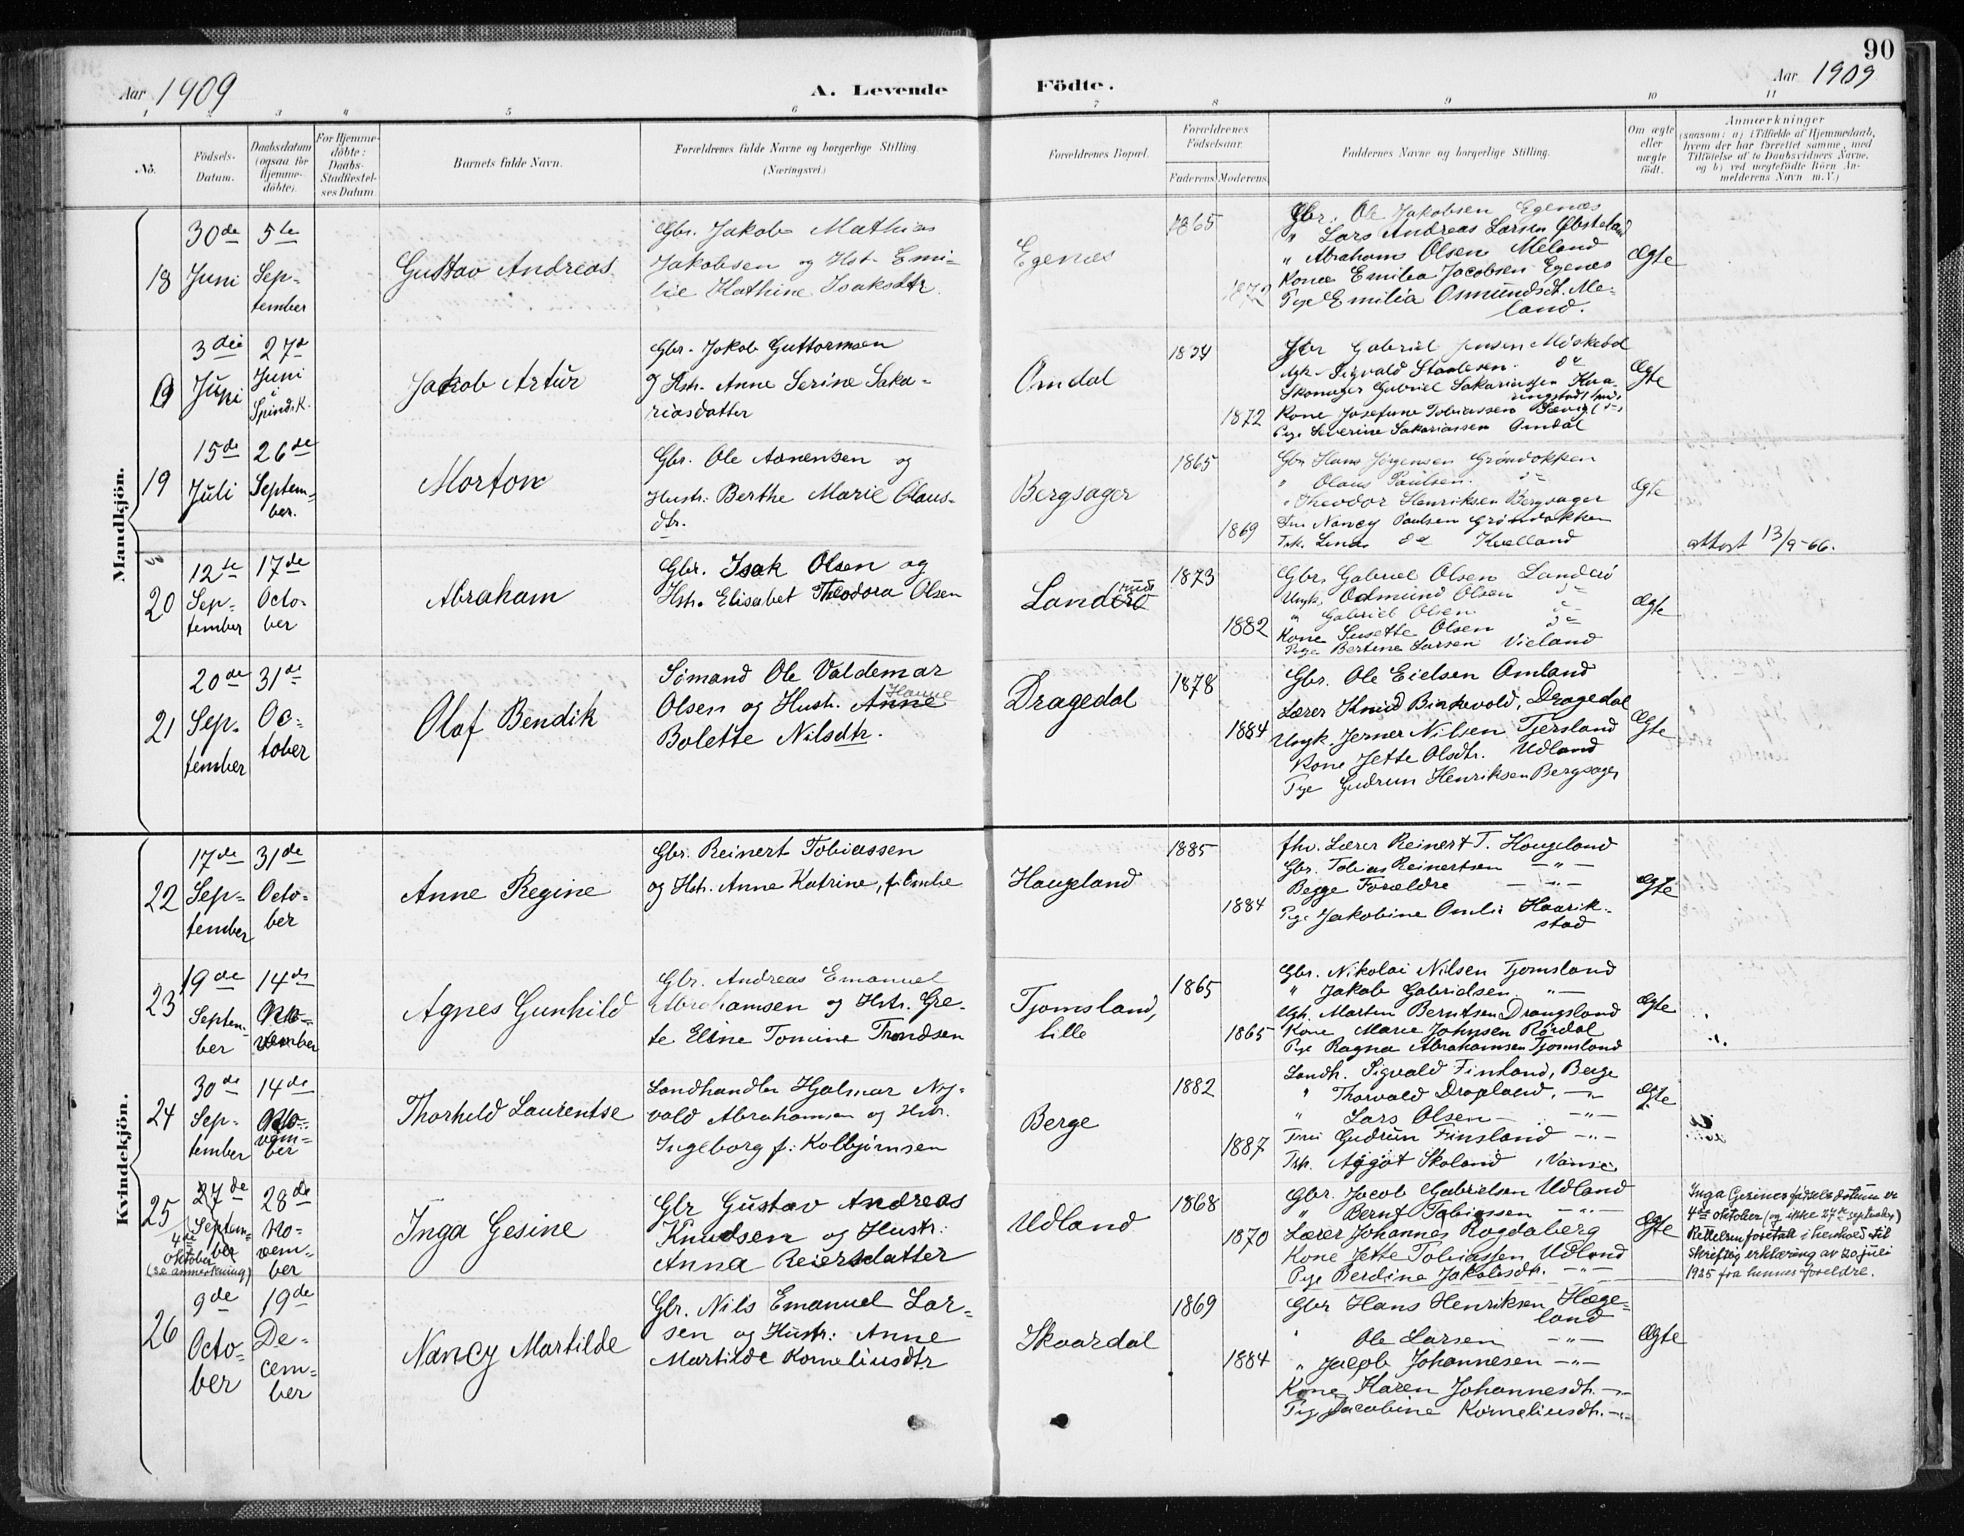 90
Aar 1909
A. Levende Födte.
Aar 1909
1 2 3 4 5 6 7 8 9 10 11
No.
Födsels-
Datum.
Daabsdatum
(ogsaa for
Hjemme-
döbte).
For Hjemme-
döbte:
Daabs-
Stadfæstel-
ses Datum.
Barnets fulde Navn.
Forældrenes fulde Navne og borgerlige Stilling
(Næringsvei.)
Forældrenes Bopæl.
Forældrenes
Födselsaar.
Faderens.
Moderens.
Faddernes Navne og borgerlige Stilling.
Om ægte
eller
uægte
födt.
Anmærkninger
(saasom: a) i Tilfælde af Hjemmedaab,
hvem der har forrettet samme, med
Tilföielse af to Daabsvidners Navne,
og b) ved uægtefödte Börn An-
melderens Navn m. V.)
Mandkjön.
18
30de
Juni
5te
Sep-
tember
Gustav Andreas
Gbr. Jakob Mathias
Jakobsen og Hst. Emi-
lie Kathine Isaksdtr.
Egenæs
1865
1872
Gbr. Ole Jakobsen Egenæs
" Lars Andreas Larsen Øbstelad
" Abraham Olsen Meland
Kone Emilia Jacobsen Egenæs
Pige Emilia Osmundsdt. Me-
land.
Ægte
19
3die
Juni
27de
Juni
i
Spinds K.
Jakob Artur
Gbr. Jakob Guttormsen
og Hstr. Anne Serine Saka-
riasdatter
Omdal
1872
Gabriel Jensen
Sigvald Staalesen do
Skomager Gabriel Sakariassen
Kone Josefine Tobiassen
Pige Severine Sakariassen Omdal
Ægte
19
15de
Juli
26de
Septem-
ber.
Morton
Gbr. Ole Aanensen og
Hustr: Berthe Marie Olaus-
dtr.
Bergsager
1865
1869
Gbr Hans Jørgensen Gröndokken
" Olaus Paulsen. do
" Theodor Henriksen Bergsager
Fru Nancy Paulsen Gröndokken
Frk. Lina do Kvelland
Ægte
attest 13/9-66.
20
12te
Sep-
tember
17de
Octo-
ber
Abraham
Gbr. Isak Olsen og
Hstr. Elisabet Theodora Olsen
Landerö
1873
1882
Gbr. Gabriel Olsen Landerö
Ungk. Odmund Olsen do
" Gabriel Olsen do
Kone Susette Olsen do
Pige Bertine Larsen Vieland
Ægte
21
20de
Sep-
tember
31de
Oc-
tober
Olaf Bendik
Sømand Ole Valdemar
Hanne
Olsen og Hustr. Anne
Bolette Nilsdtr.
Dragedal
1878
1884
Gbr. Ole Eielsen Omland
Lærer Knud Birkevold, Dragedal
Ungk. Jerner Nilsen Tjersland
Kone Jette Olsdtr. Udland
Pige Gudrun Henriksen Bergsager
Ægte
Kvindekjön.
22
17de
Sep-
tember
31de
Octo-
ber
Anne Regine
Gbr. Reinert Tobiassen
og Hstr. Anne Katrine, f. Omlie
Haugeland
1885
1884
fhv. Lærer Reinert T. Haugeland
Gbr. Tobias Reinertsen — " —
Begge Forældre — " —
Pige Jakobine Omlie Haarik-
stad
Ægte
23
19de
Septem-
ber
14de
No-
vember
Agnes Gunhild
Gbr. Andreas Emanuel
Abrahamsen og Hstr. Gre-
te Eline Tomine Trondsen
Tjomsland,
lille
1865
1865
Gbr. Nikolai Nilsen Tjomsland
" Jakob Gabrielsen — " —
Ugk. Martin Berntsen Drangsland
Kone Marie Johnsen Rördal
Pige Ragna Abrahamsen Tjomsland
Ægte
24
30de
Sep-
tember
14de
No-
vem-
ber
Thorhild Laurentse
Landhandler Hjalmar Ny-
vold Abrahamsen og Hstr.
Ingeborg f: Kolbjørnsen
Berge
1882
1887
Landh. Sigvald Finsland, Berge
" Thorvald Dragland, — " —
" Lars Olsen — — " —
Frue Gudrun Finsland — " —
Frk. Aggot Skoland, Vanse
Ægte
25
27de
Septem-
ber
4de
Oktober
(se anmerkning)
28de
No-
vem-
ber
Inga Gesine
Gbr Gustav Andreas
Knudsen og Hustr:
Anna Reiersdatter
Udland
1868
1870
Gbr. Jacob Gabrielsen Udland
" Bernt Tobiassen — " —
Lærer Johannes Rogdaberg
Kone Jette Tobiassen Udland
Pige Berdine Jakobsdtr. — " —
Ægte
Inga Gesines födselsdatum er
4de oktober (og ikke 27de september)
Rettelsen foretatt i henhold til
skriftlig erklæring av 20 juli
1925 fra hennes foreldre.
26
9de
Octo-
ber
19de
De-
cem-
ber
Nancy Martilde
Gbr. Nils Emanuel Lar-
sen og Hustr: Anne
Martilde Korneliusdtr
Skoardal
1869
1884
Gbr Hans Henriksen Hæge-
land
" Ole Larsen — " —
" Jacob Johannesen — " —
Kone Karen Johannesdtr. — " —
Pige Jacobine Korneliusdtr. — " —
Ægte